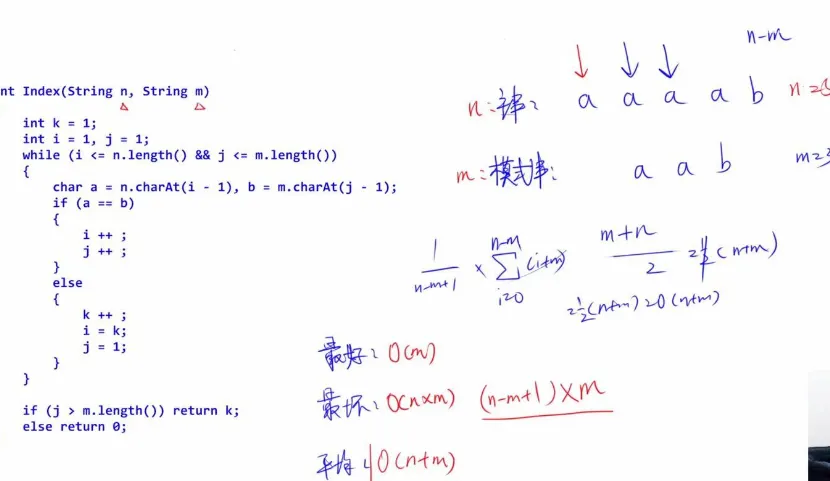 nt Index(String n, String m)
int k = 1;
int i = 1, j = 1;
while (i <= n.length() && j <= m.length())
{
char a = n.charAt(i - 1), b = m.charAt(j - 1);
if (a == b)
{
i ++ ;
j ++ ;
}
else
{
k ++ ;
i = k;
j = 1;
}
}
if (j > m.length()) return k;
else return 0;
n-m
n:主串: a a a a b n=5
m:模式串: a a b m=3
1/(n-m+1) × ∑ i=0 n-m (i+m) (m+n)/2 = 1/2 (n+m)
= 1/2 (n+m) = O(n+m)
最好: O(m)
最坏: O(n×m) (n-m+1)×m
平均: O(n+m)